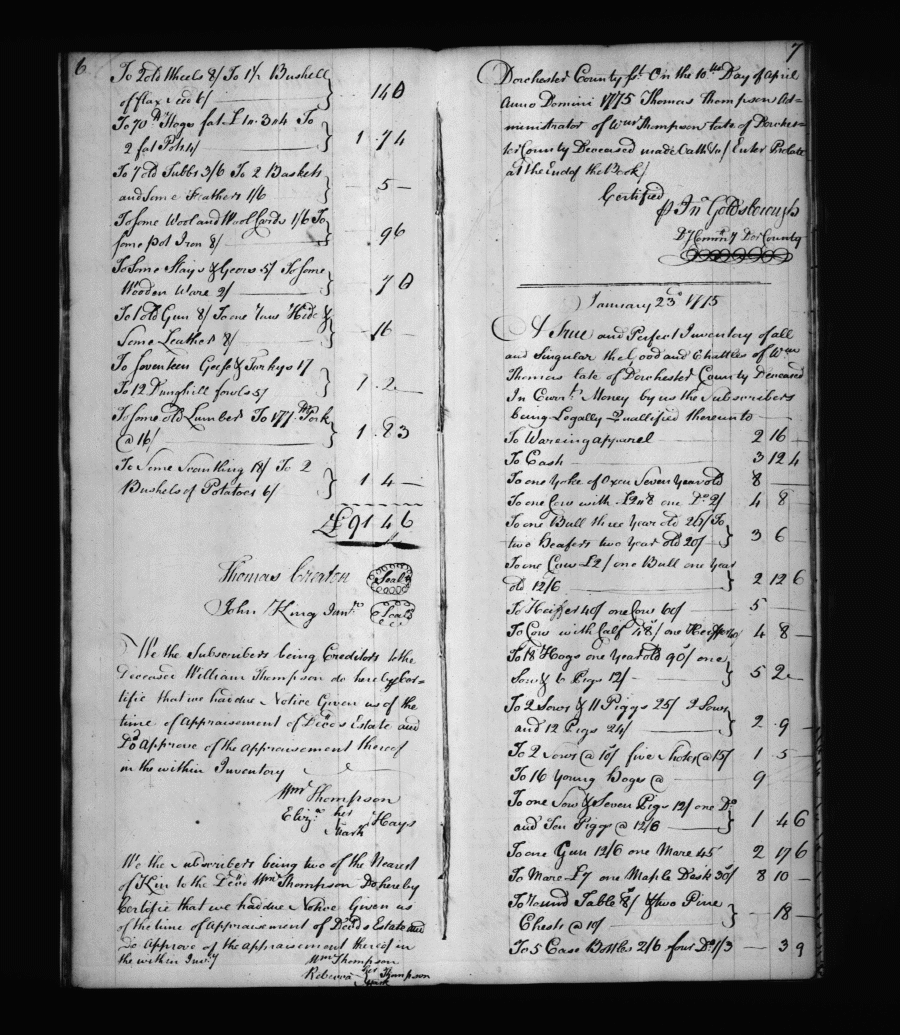 6
To 2 old Wheels 8/ To 1½ Bushell
of flax seed 6/ 14 0
To 70 lb Hogs fat £1 n. 3 n 4 To
2 fat Pots 4/ 1 . 7 4
To 7 old Tubbs 3/6 To 2 Baskets
and Some Feathers 1/6 — 5 —
To Some Wool and Wool Cards 1/6 To
Some pot Iron 8/ 9 6
To Some Slays & Gears 5/ To Some
Wooden Ware 2/ 7 0
To 1 old Gun 8/ To one Raw Hide &
Some Leather 8/ . 16 —
To Seventeen Geese & Turkys 17
To 12 Dunghill fowls 5/ 1 . 2 —
To Some old Lumber To 177 lb Pork
@ 16/ 1 . 8 3
To Some Scantling 18/ To 2
Bushels of Potatoes 6/ 1 4 —
£ 91 4 6
Thomas Creaton Seal
John King Junr. Seal
We the Subscribers being Creditors to the
Deceased William Thompson do hereby Cer=
tific that we had due Notice Given us of the
time of Appraisement of Decds Estate and
Do Approve of the appraisement thereof
in the within Inventory
Wm Thompson
Elizh. her Hays
Mark
We the Subscribers being two of the Nearest
of Kin to the Decd Wm Thompson Do hereby
Certifie that we had due Notice Given us
of the time of Appraisement of Decds Estate and
Do Approve of the appraisement thereof in
the within Invy
Wm Thompson
Rebecca her Thompson
Mark
7
Dorchester County sct. On the 10th Day of April
Anno Domini 1775 Thomas Thompson Ad=
ministrator of Wm Thompson late of Dorches=
ter County Deceased made Oath &c/ Enter Probate
at the End of the Book/
Certified
p Jno Goldsborough
Dy Commry Dor County
January 23d 1775
A True and Perfect Inventory of all
and Singular the Good and Chattles of Wm
Thomas late of Dorchester County Deceased
In Currt. Money by us the Subscribers
being Legally Quallified thereunto
To Wareing apparel 2 16 —
To Cash 3 12 4
To one Yoke of Oxen Seven Year old 8 —
To one Cow with £2 n 8 one Do 2/ 4 8
To one Bull three Year old 26/ To
two Heafers two Year old 20/ 3 6 —
To one Cow £2/ one Bull one Year
old 12/6 2 12 6
To Heifer 40/ one Cow 60/ 5
To Cow with Calf 48/ one Heiffer 40/ 4 8 —
To 18 Hogs one Year old 90/ one
Sow & 6 Pigs 12/ 5 2 —
To 2 Sows & 11 Piggs 25/ 2 Sows
and 12 Pigs 24/ 2 . 9
To 2 Sows @ 10/ five Shotes @ 15/ 1 5 —
To 16 Young Hogs @ 9
To one Sow & Seven Pigs 12/ one Do
and Ten Piggs @ 12/6 1 4 6
To one Gun 12/6 one Mare 45 2 17 6
To Mare £7 one Maple Desk 30/ 8 10 —
To Round Table 8/ & two Pine
Chests @ 10/ — 18 —
To 5 Case Bottles 2/6 four Do 1/3 — 3 9